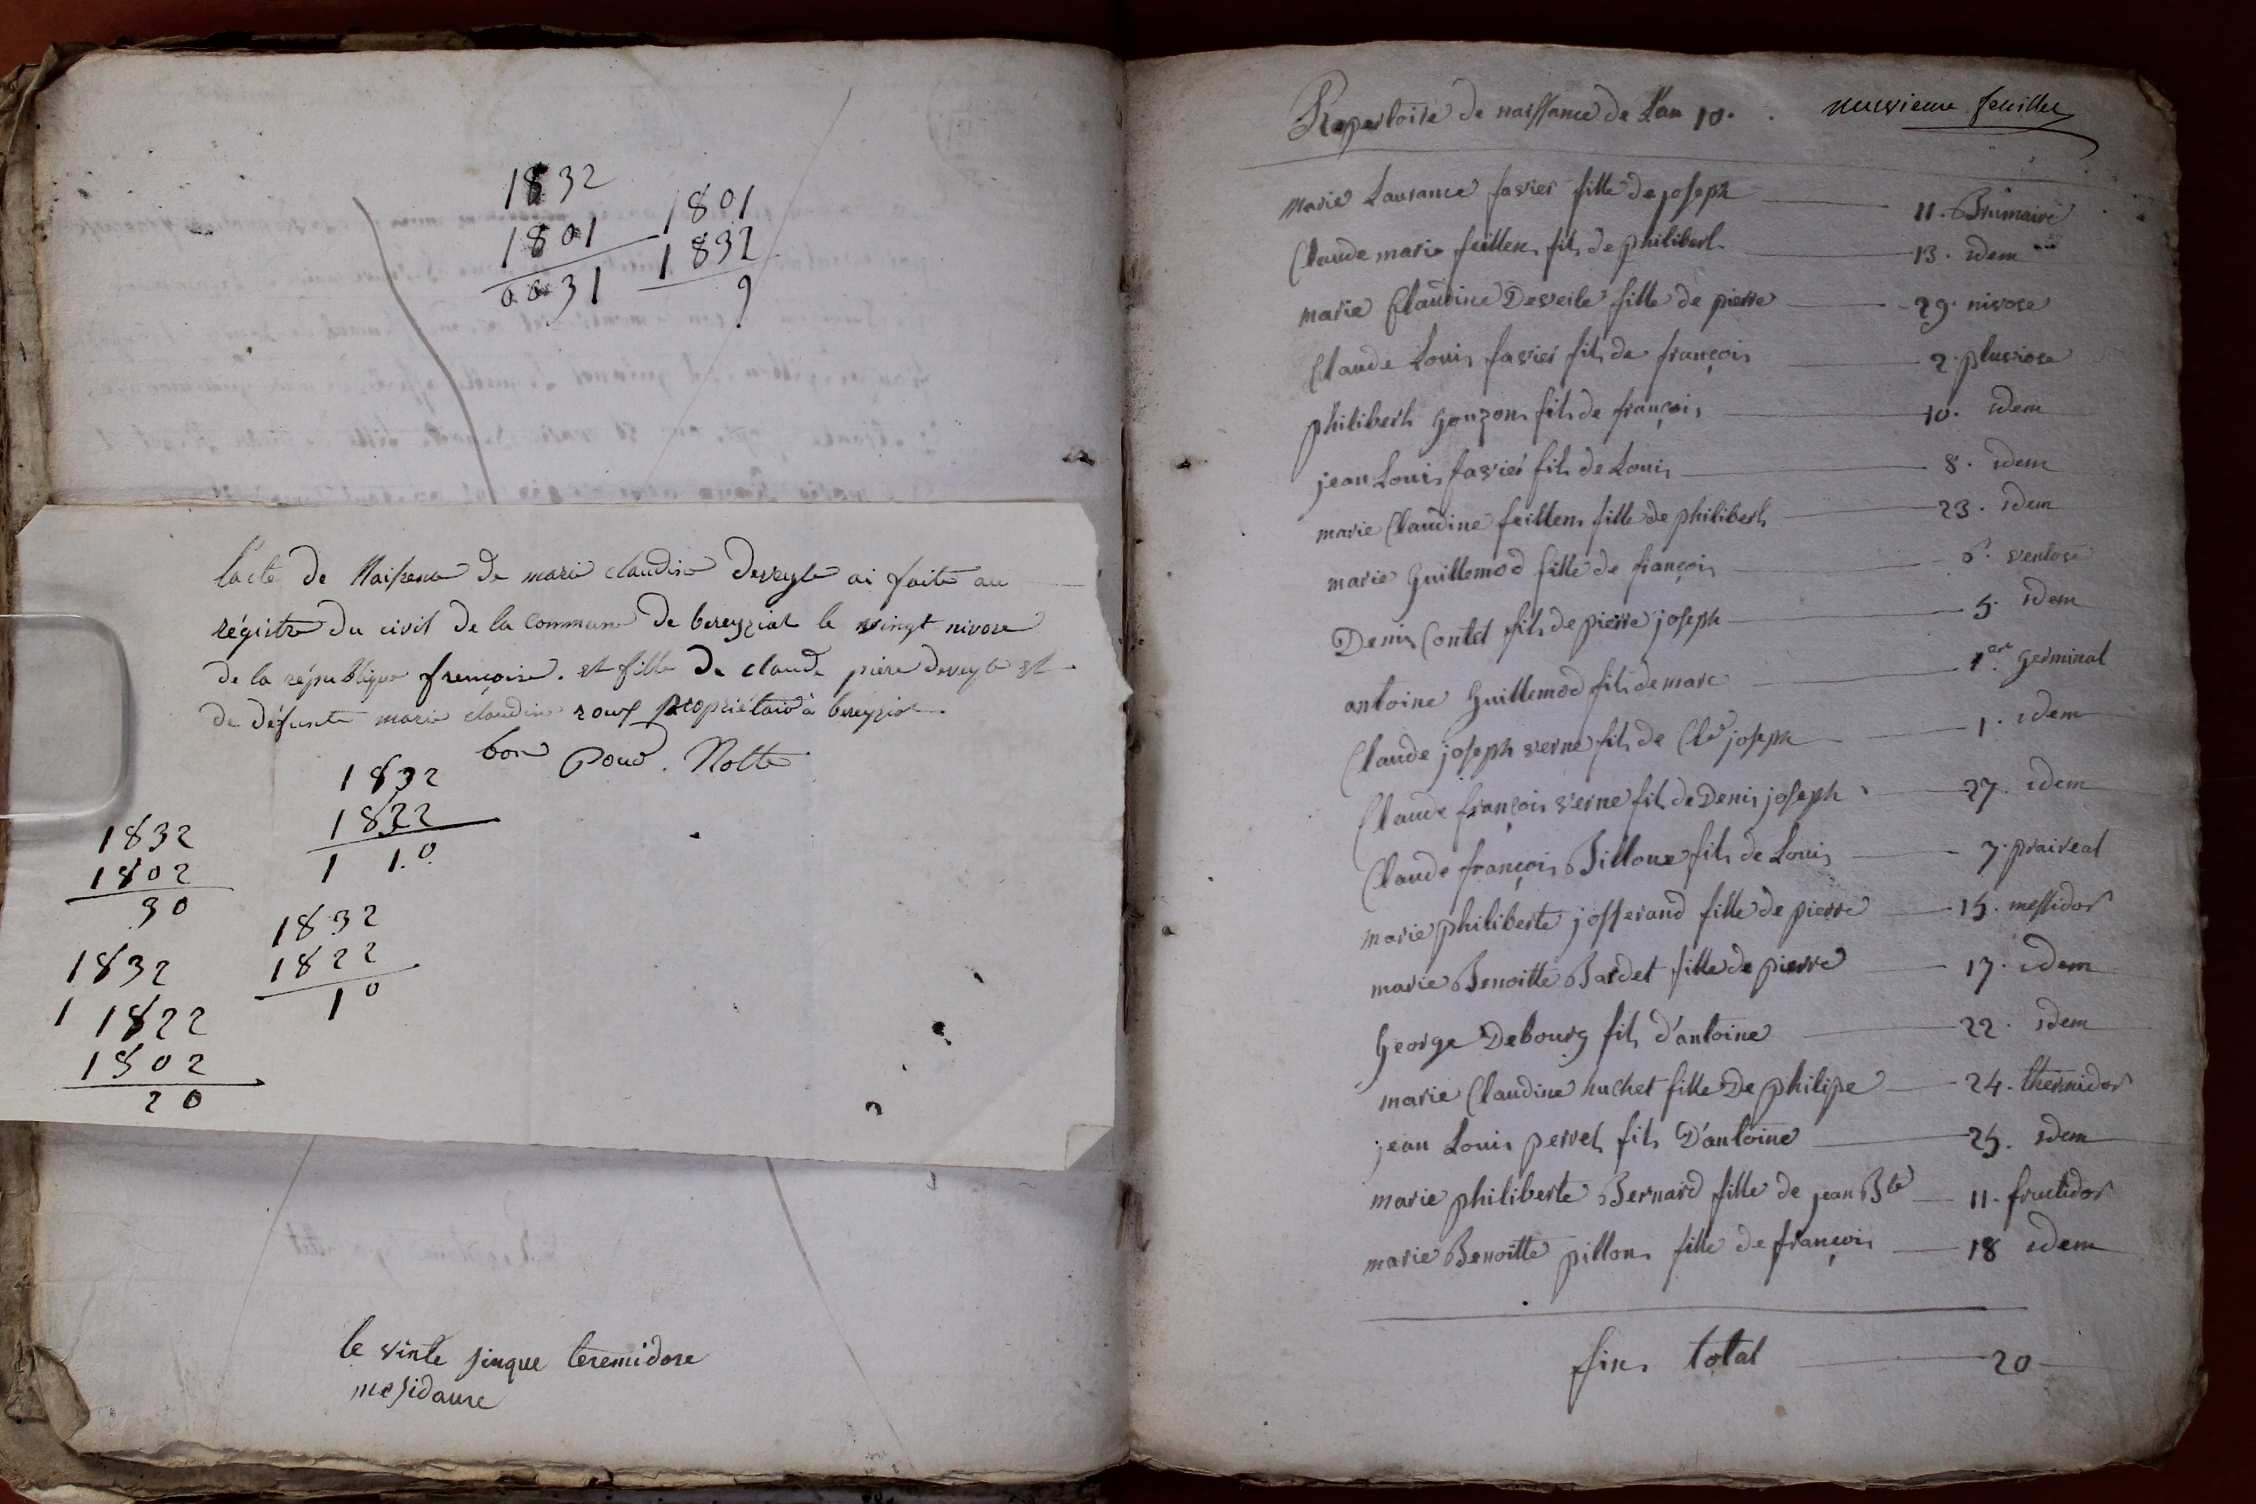 1832
1801
0031
1801
1832
9
l'acte de Naisence de marie claudine deveyle ai faite au
régistre du civil de la commune de bereyziat le vingt nivose
de la république françoise. et fille de claude pière deveyle et
de défunte marie claudine roux propriétaire à bereyziat
bon pour. Notte
1832
1822
1 10
1832
1802
30
1832
1822
10
1832
1 1822
1802
20
le vinte sinque teremidore
mesidaure
Repertoire de naissance de L'an 10. neuvieme feuillet
marie Laurance favier fille de joseph 11. Brumaire
Claude marie feillens fils de philibert 13. idem
marie Claudine Deveile fille de pierre 29. nivose
Claude Louis favier fils de françois 2. pluviose
philibert gonzon fils de françois 10. idem
jean Louis favier fils de Louis 8. idem
marie Claudine feillens fille de philibert 23. idem
marie guillemod fille de françois 6. ventose
Denis Contet fils de pierre joseph 5. idem
antoine guillemod fils de marc 1er. germinal
Claude joseph verne fils de Cle joseph 1. idem
Claude françois verne fils de Denis joseph 27. idem
Claude françois Billoux fils de Louis 7. praireal
marie philiberte josserand fille de pierre 15. messidor
marie Benoitte Bardet fille de pierre 17. idem
george Debourg fils d'antoine 22. idem
marie Claudine huchet fille De philipe 24. thermidor
jean Louis pervet fils D'antoine 25. idem
marie philiberte Bernard fille de jean Bte 11. fructidor
marie Benoitte pillon fille de françois 18 idem
fin total 20